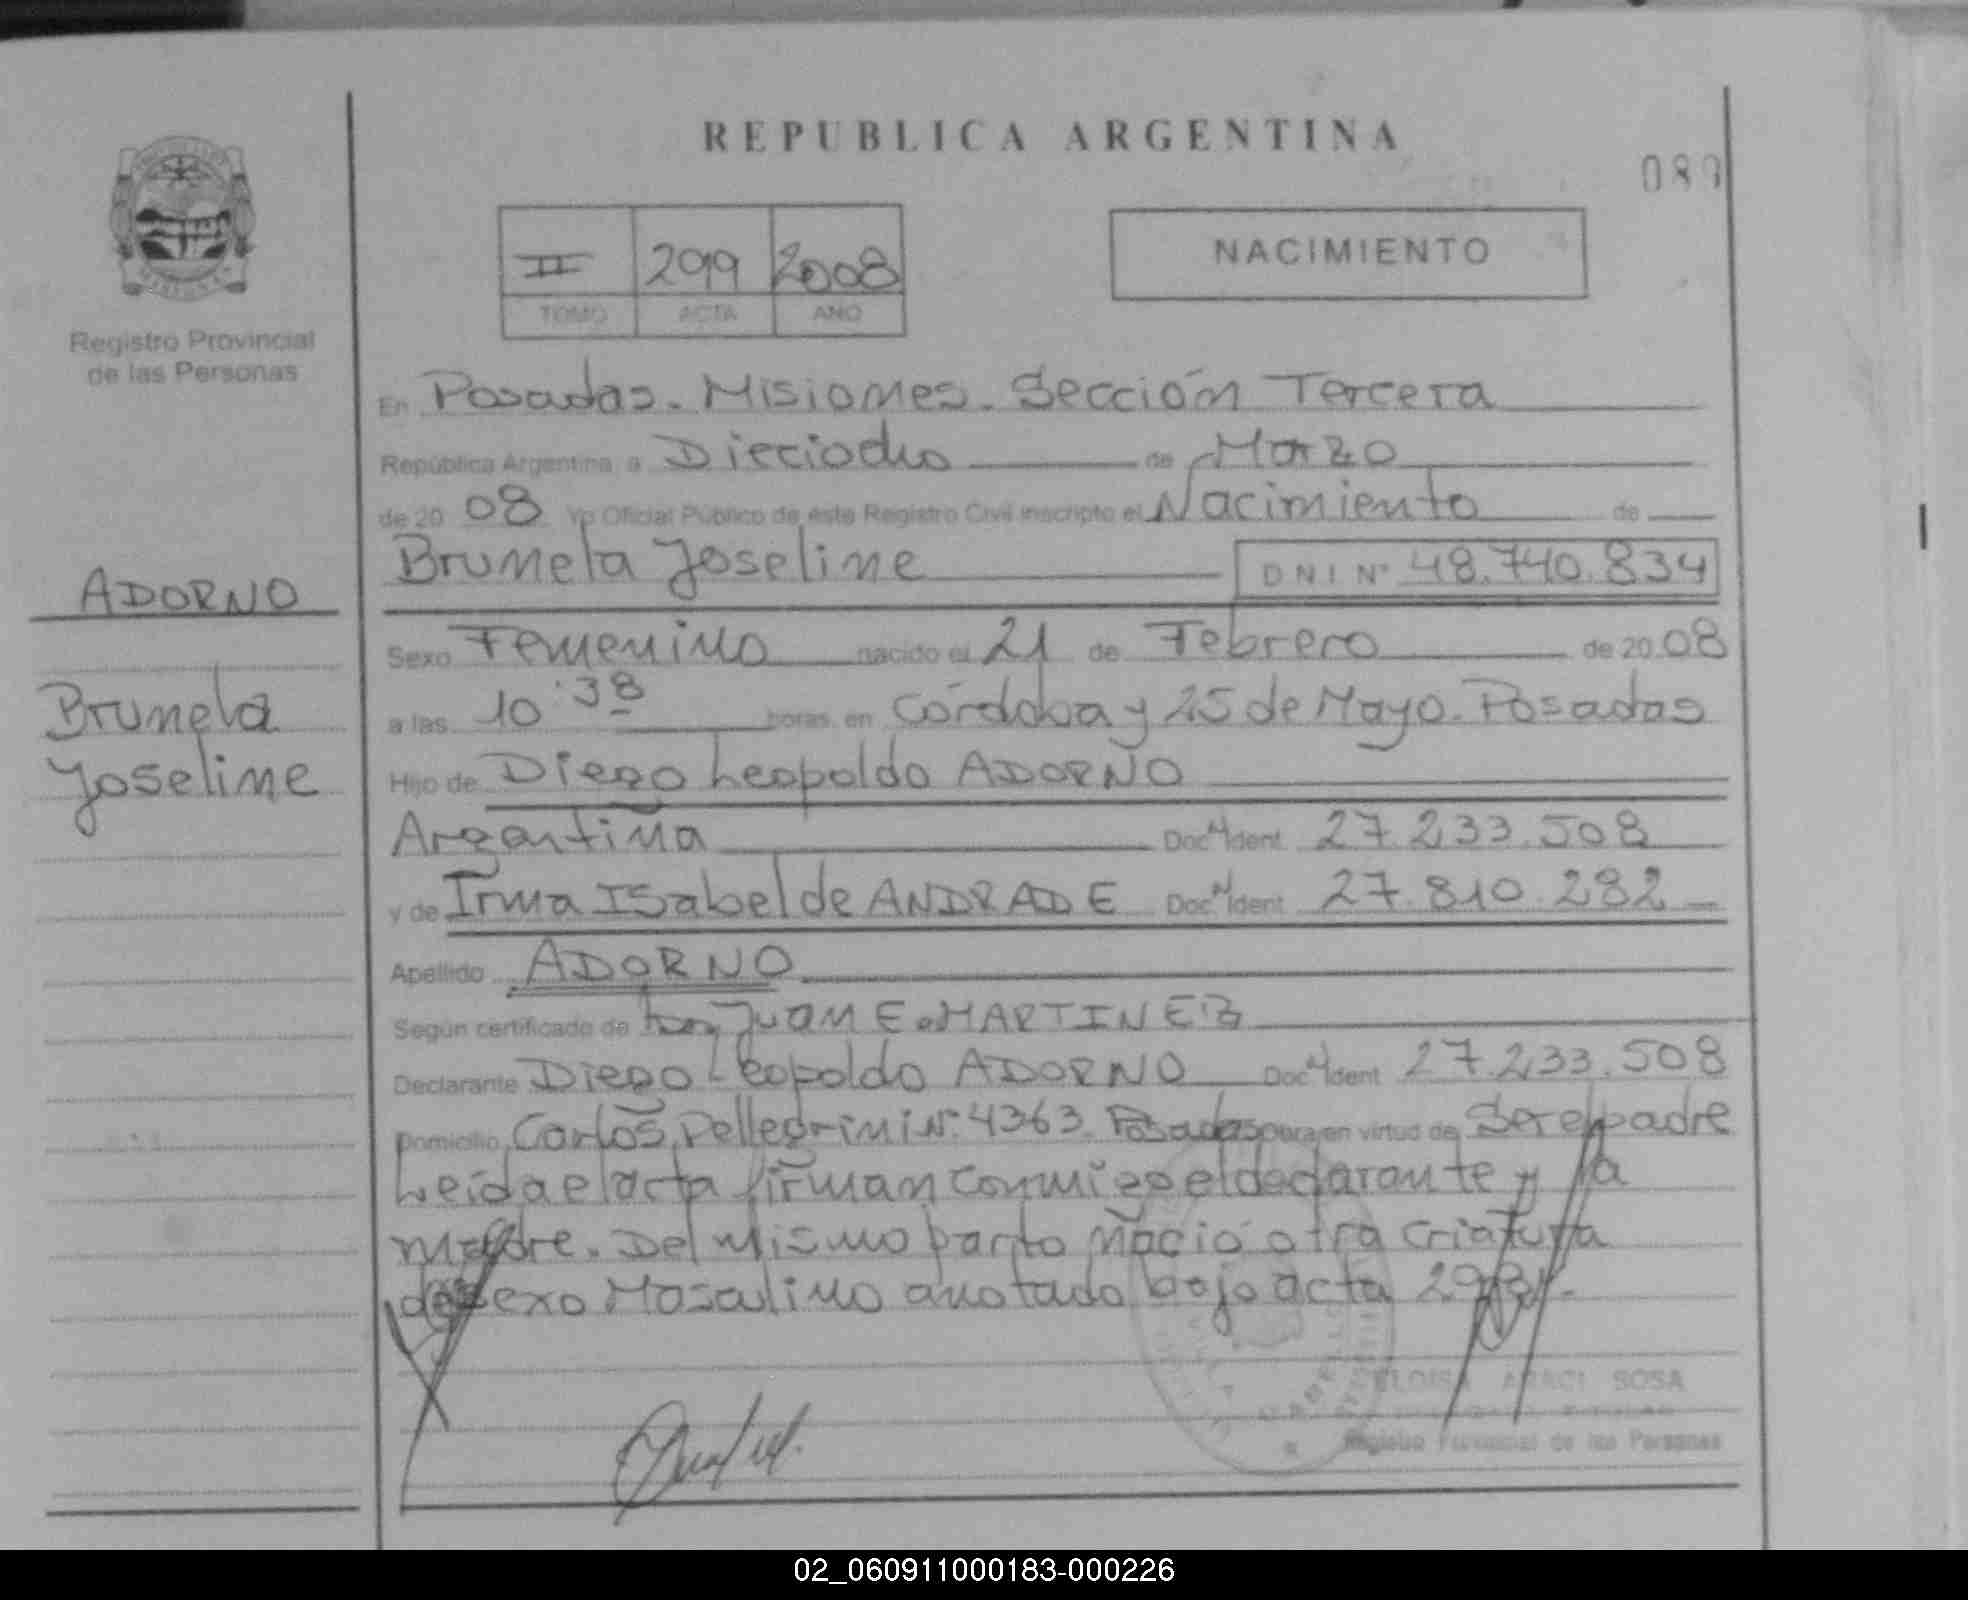 REPUBLICA ARGENTINA
089
II 299 2008
TOMO ACTA AÑO
NACIMIENTO
Registro Provincial
de las Personas
En Posadas. Misiones. Sección Tercera
República Argentina a Dieciocho de Marzo
de 20 08 Yo Oficial Público de este Registro Civil inscripto el Nacimiento de
Brunela Joseline DNI Nº 48.740.834
ADORNO
Brunela
Joseline
Sexo Femenino nacido el 21 de Febrero de 20 08
a las 10:38 horas en Córdoba y 25 de Mayo. Posadas
Hijo de Diego Leopoldo ADORNO
Argentina Doc. Ident. 27.233.508
y de Irma Isabel de ANDRADE Doc. Ident. 27.810.282
Apellido ADORNO
Según certificado de Juan E. MARTINEZ
Declarante Diego Leopoldo ADORNO Doc. Ident. 27.233.508
Domicilio Carlos Pellegrini Nº 4363. Posadas para en virtud de Ser el padre
Leída el acta firman conmigo el declarante y la
madre. Del mismo parto nació otra criatura
de sexo Masculino anotado bajo acta
ELOISA ARACI SOSA
Registro Provincial de las Personas
02_060911000183-000226